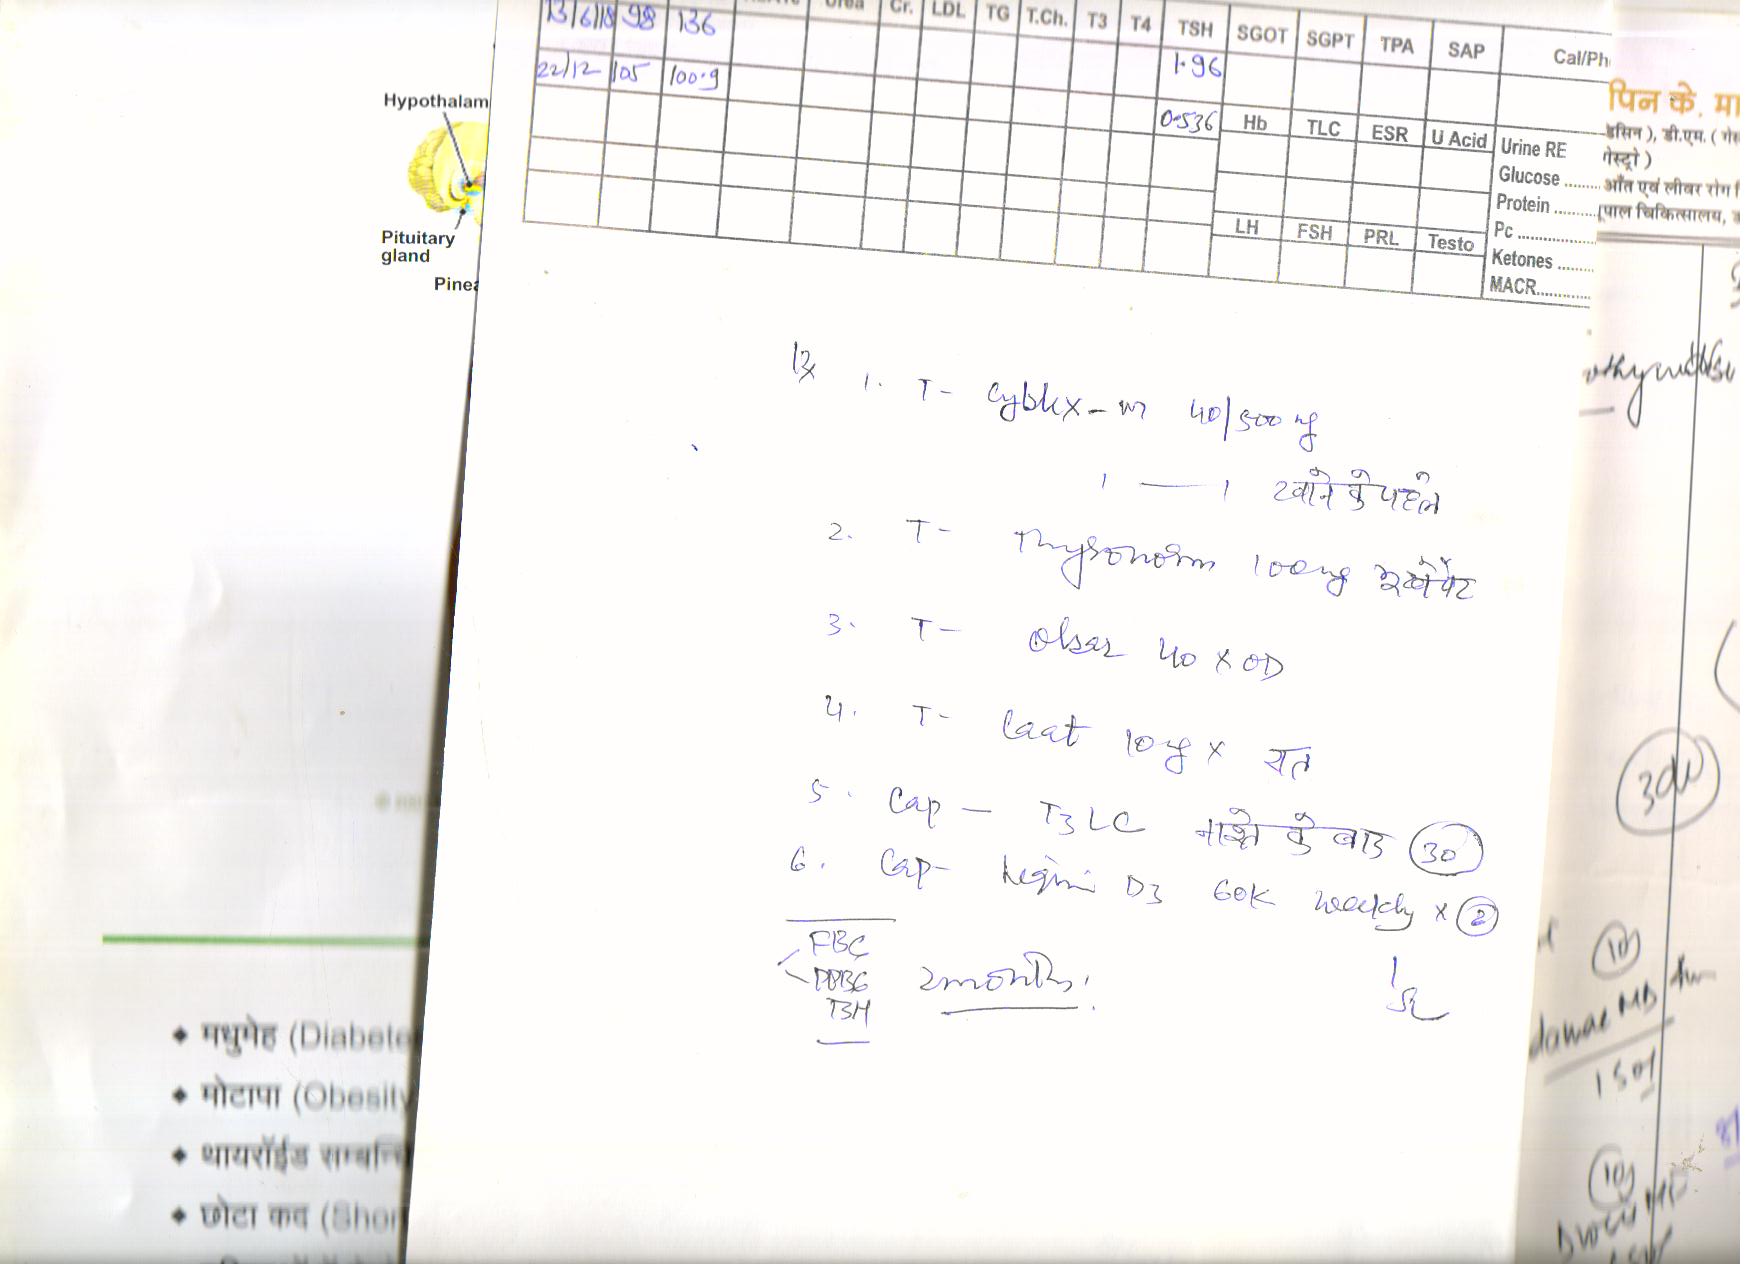 Hypothalam
Pituitary
gland
Pinea
Urea Cr. LDL TG T.Ch. T3 T4 TSH SGOT SGPT TPA SAP Cal/Ph
13/6/18 98 136 1.96
22/12 105 100.9 0.536
Hb TLC ESR U Acid
LH FSH PRL Testo
Urine RE
Glucose ........
Protein ..........
Pc .................
Ketones .........
MACR............
पिन के. मा
डेसिन ), डी.एम. ( गे
गेस्ट्रो )
आँत एवं लीवर रोग
पाल चिकित्सालय,
Rx 1. T- Cyblex-m 40/500 mg
1 — 1 खाने के पहले
2. T- Thyronorm 100mg खाली पेट
3. T- Olsar 40 x OD
4. T- Caat 10mg x रात
5. Cap - T3LC नाश्ते के बाद 30
6. Cap- D3 60K weekly x 2
FBG
PPBG 2 months.
TSH
मधुमेह (Diabete
मोटापा (Obesity
थायरॉईड सम्बन्धि
छोटा कद (Shor
30
10
MD
10